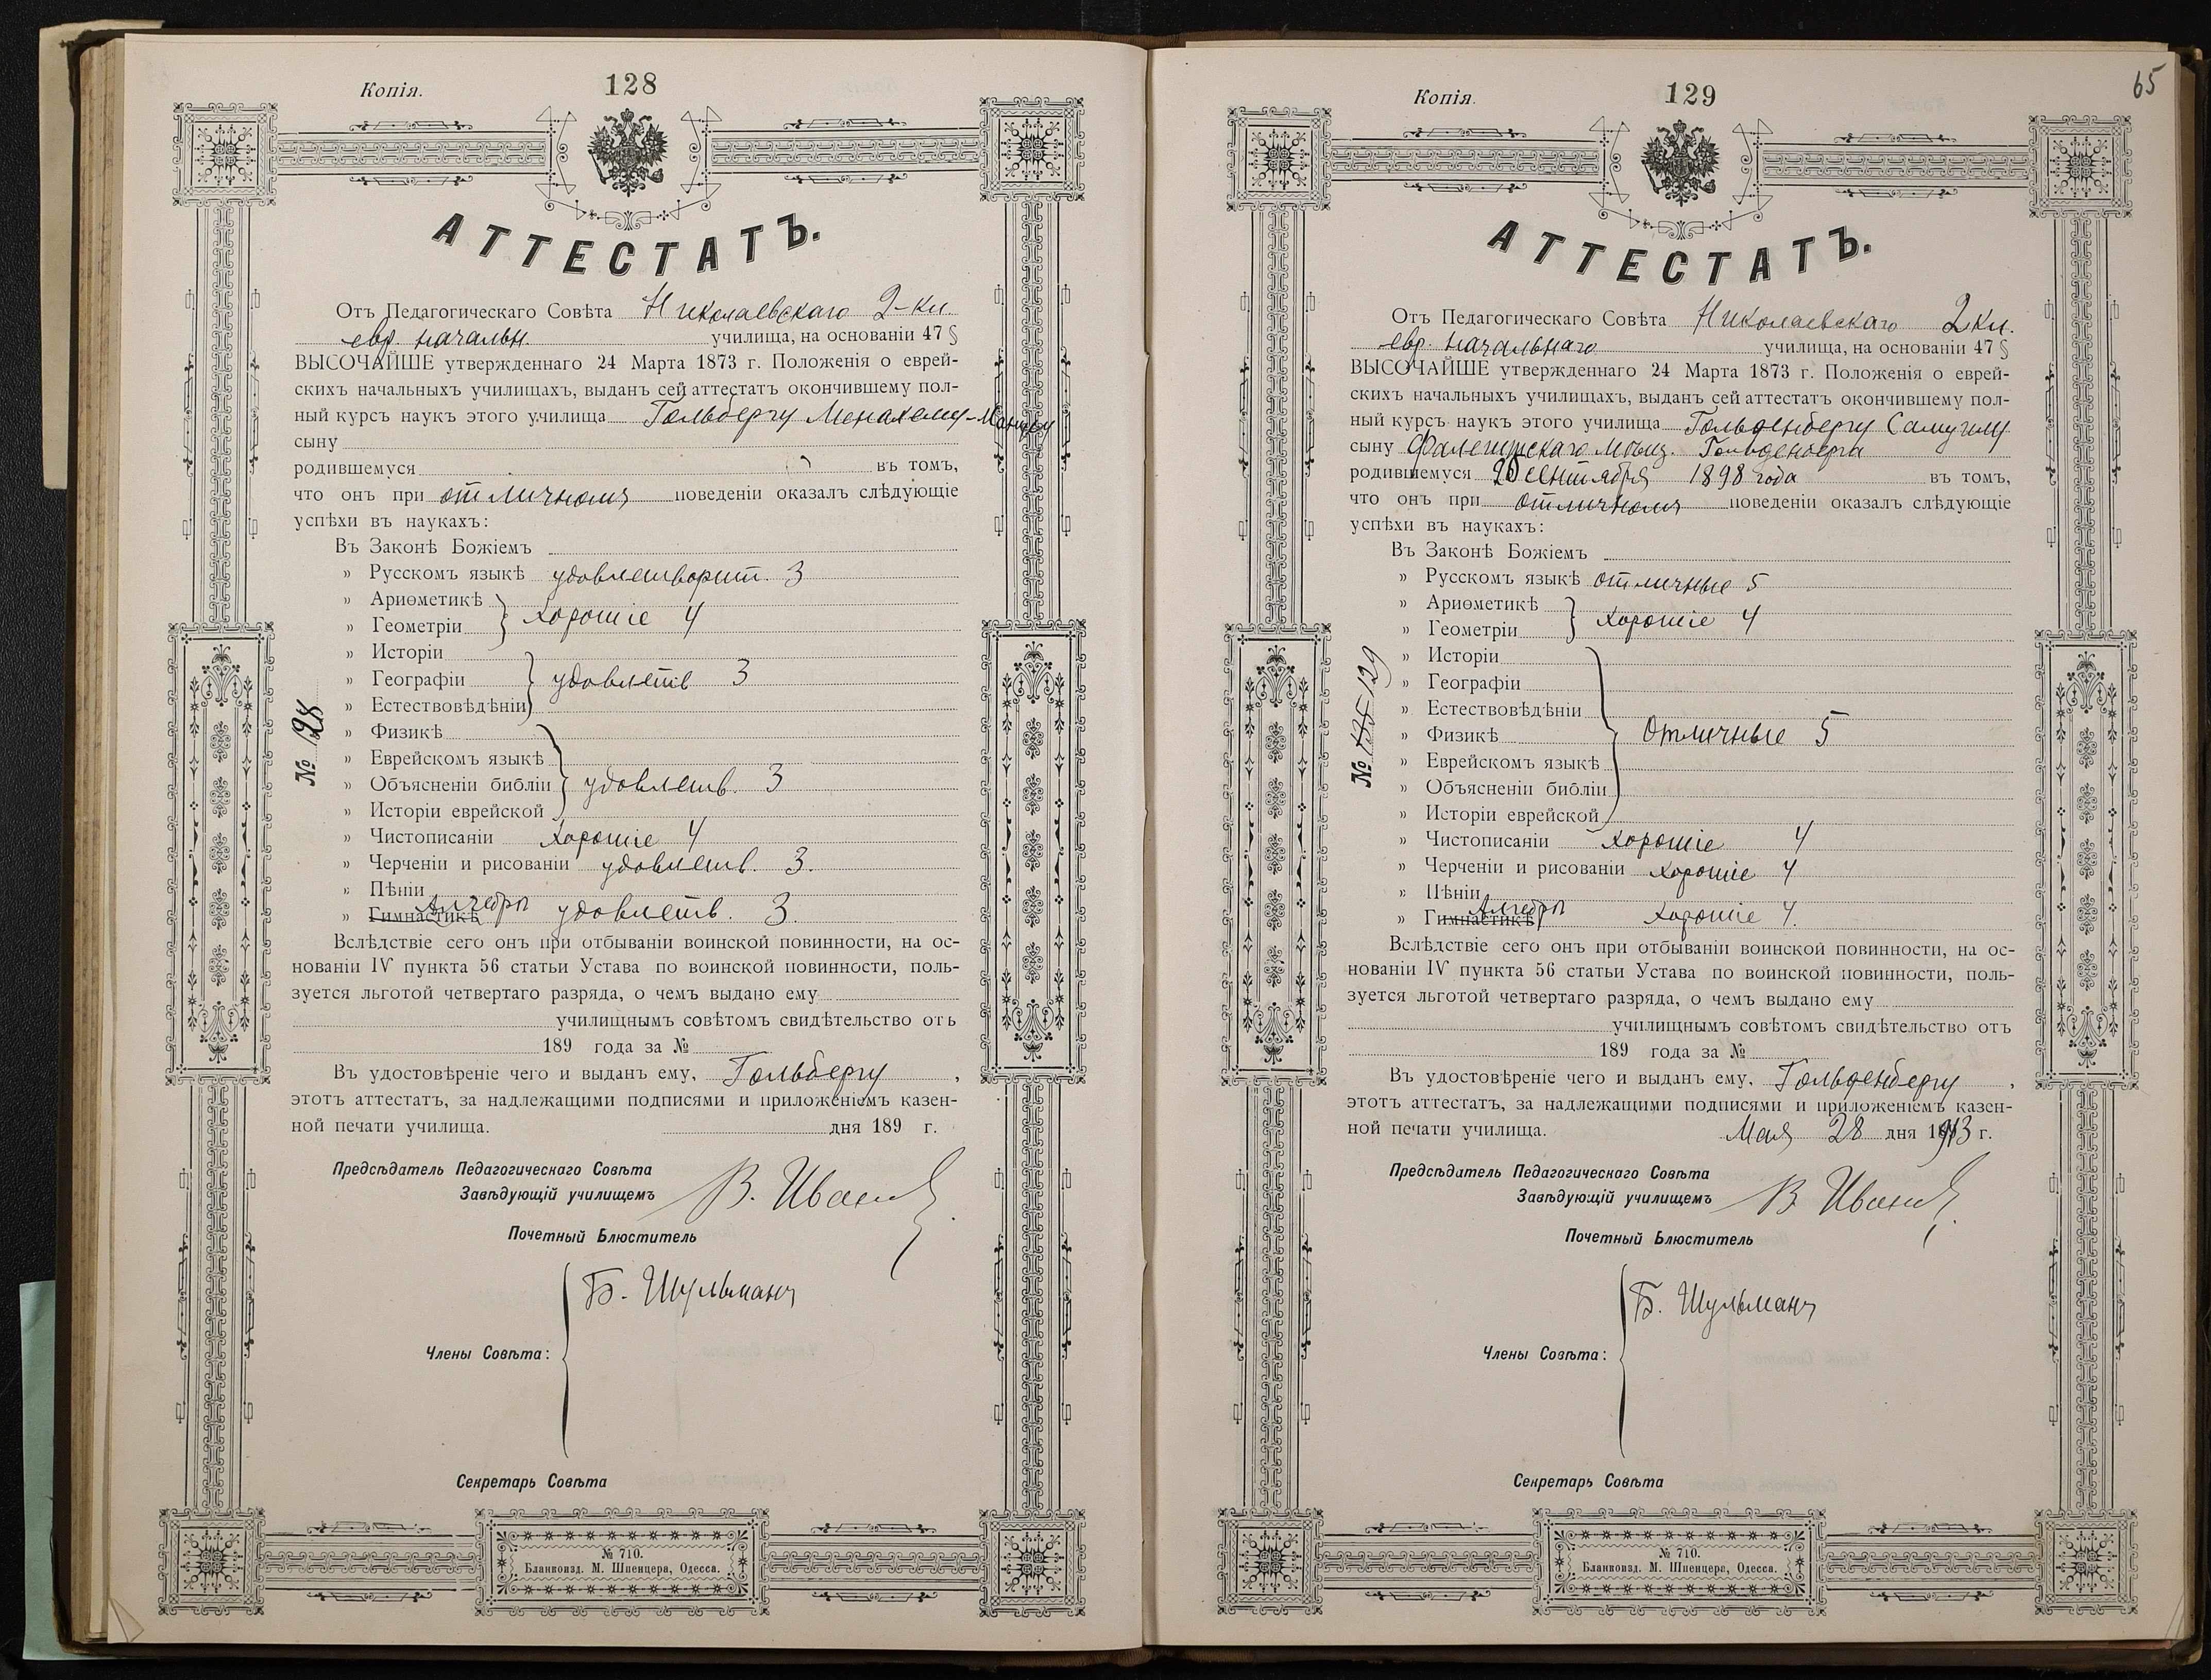 Копія.
128
АТТЕСТАТЪ.
Отъ Педагогическаго Совѣта Николаевскаго 2-кл
евр. начальн. училища, на основаніи 47 §
ВЫСОЧАЙШЕ утвержденнаго 24 Марта 1873 г. Положенія о еврей-
скихъ начальныхъ училищахъ, выданъ сей аттестатъ окончившему пол-
ный курсъ наукъ этого училища Гольбергу Менахему-
сыну
родившемуся въ томъ,
что онъ при отличномъ поведеніи оказалъ слѣдующіе
успѣхи въ наукахъ:
Въ Законѣ Божіемъ
» Русскомъ языкѣ удовлетворит. 3
» Ариѳметикѣ
» Геометріи } хорошіе 4
» Исторіи
» Географіи } удовлетв 3
» Естествовѣдѣніи
» Физикѣ
» Еврейскомъ языкѣ
» Объясненіи библіи } удовлетв. 3
» Исторіи еврейской
» Чистописаніи хорошіе 4
» Черченіи и рисованіи удовлетв. 3.
» Пѣніи
» Гимнастикѣ Алгебры удовлетв. 3.
Вслѣдствіе сего онъ при отбываніи воинской повинности, на ос-
нованіи IV пункта 56 статьи Устава по воинской повинности, поль-
зуется льготой четвертаго разряда, о чемъ выдано ему
училищнымъ совѣтомъ свидѣтельство отъ
189 года за №
Въ удостовѣреніе чего и выданъ ему, Гольбергу,
этотъ аттестатъ, за надлежащими подписями и приложеніемъ казен-
ной печати училища. дня 189 г.
№ 128
Предсѣдатель Педагогическаго Совѣта
Завѣдующій училищемъ В. Ивановъ
Почетный Блюститель
Б. Шульманъ
Члены Совѣта:
Секретарь Совѣта
№ 710.
Бланкоизд. М. Шпенцера, Одесса.
65
Копія.
129
АТТЕСТАТЪ.
Отъ Педагогическаго Совѣта Николаевскаго 2 кл.
евр. начальнаго училища, на основаніи 47 §
ВЫСОЧАЙШЕ утвержденнаго 24 Марта 1873 г. Положенія о еврей-
скихъ начальныхъ училищахъ, выданъ сей аттестатъ окончившему пол-
ный курсъ наукъ этого училища Гольденбергу Самуилу
сыну Фалештскаго мѣщ. Гольденберга
родившемуся 20 сентября 1898 года въ томъ,
что онъ при отличномъ поведеніи оказалъ слѣдующіе
успѣхи въ наукахъ:
Въ Законѣ Божіемъ
» Русскомъ языкѣ отличные 5
» Ариѳметикѣ
» Геометріи } хорошіе 4
» Исторіи
» Географіи
» Естествовѣдѣніи
» Физикѣ } Отличные 5
» Еврейскомъ языкѣ
» Объясненіи библіи
» Исторіи еврейской
» Чистописаніи хорошіе 4
» Черченіи и рисованіи хорошіе 4
» Пѣніи
» Гимнастикѣ Алгебры хорошіе 4.
Вслѣдствіе сего онъ при отбываніи воинской повинности, на ос-
нованіи IV пункта 56 статьи Устава по воинской повинности, поль-
зуется льготой четвертаго разряда, о чемъ выдано ему
училищнымъ совѣтомъ свидѣтельство отъ
189 года за №
Въ удостовѣреніе чего и выданъ ему, Гольденбергу,
этотъ аттестатъ, за надлежащими подписями и приложеніемъ казен-
ной печати училища. Мая 28 дня 1913 г.
№ 129
Предсѣдатель Педагогическаго Совѣта
Завѣдующій училищемъ В. Ивановъ
Почетный Блюститель
Б. Шульманъ
Члены Совѣта:
Секретарь Совѣта
№ 710.
Бланкоизд. М. Шпенцера, Одесса.